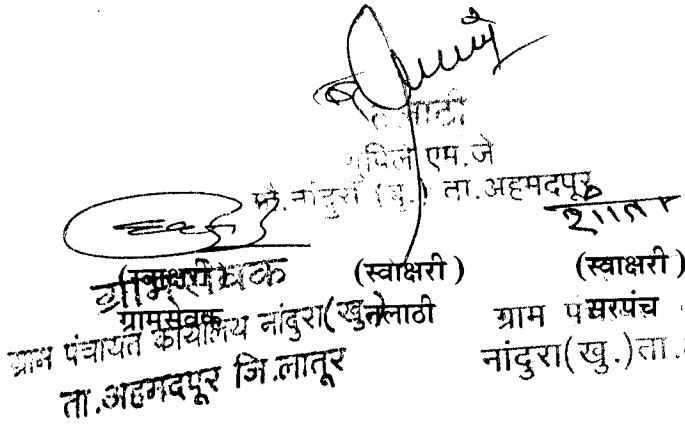 तलाठी
एम.जे
नांदुरा (बु.) ता.अहमदपूर
शांता
(स्वाक्षरी) (स्वाक्षरी) (स्वाक्षरी)
ग्रामसेवक
ग्रामसेवक तलाठी सरपंच
ग्राम पंचायत कार्यालय नांदुरा(खु) ग्राम
ता.अहमदपूर जि.लातूर नांदुरा(खु.)ता.